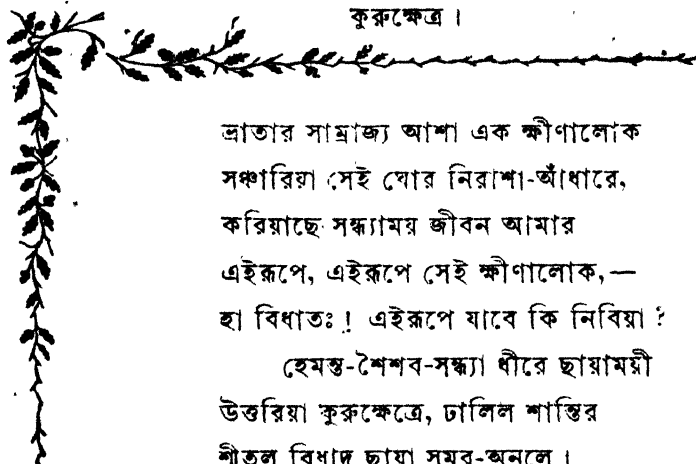 কুরুক্ষেত্র।
ভ্রাতার সাম্রাজ্য আশা এক ক্ষীণালোক
সঞ্চারিয়া সেই ঘোর নিরাশা-আঁধারে,
করিয়াছে সন্ধ্যাময় জীবন আমার
এইরূপে, এইরূপে সেই ক্ষীণালোক,—
হা বিধাতঃ! এইরূপে যাবে কি নিবিয়া?
হেমন্ত-শৈশব-সন্ধ্যা ধীরে ছায়াময়ী
উত্তরিয়া কুরুক্ষেত্রে, ঢালিল শান্তির
শীতল বিষাদ ছায়া সমর-অনলে।